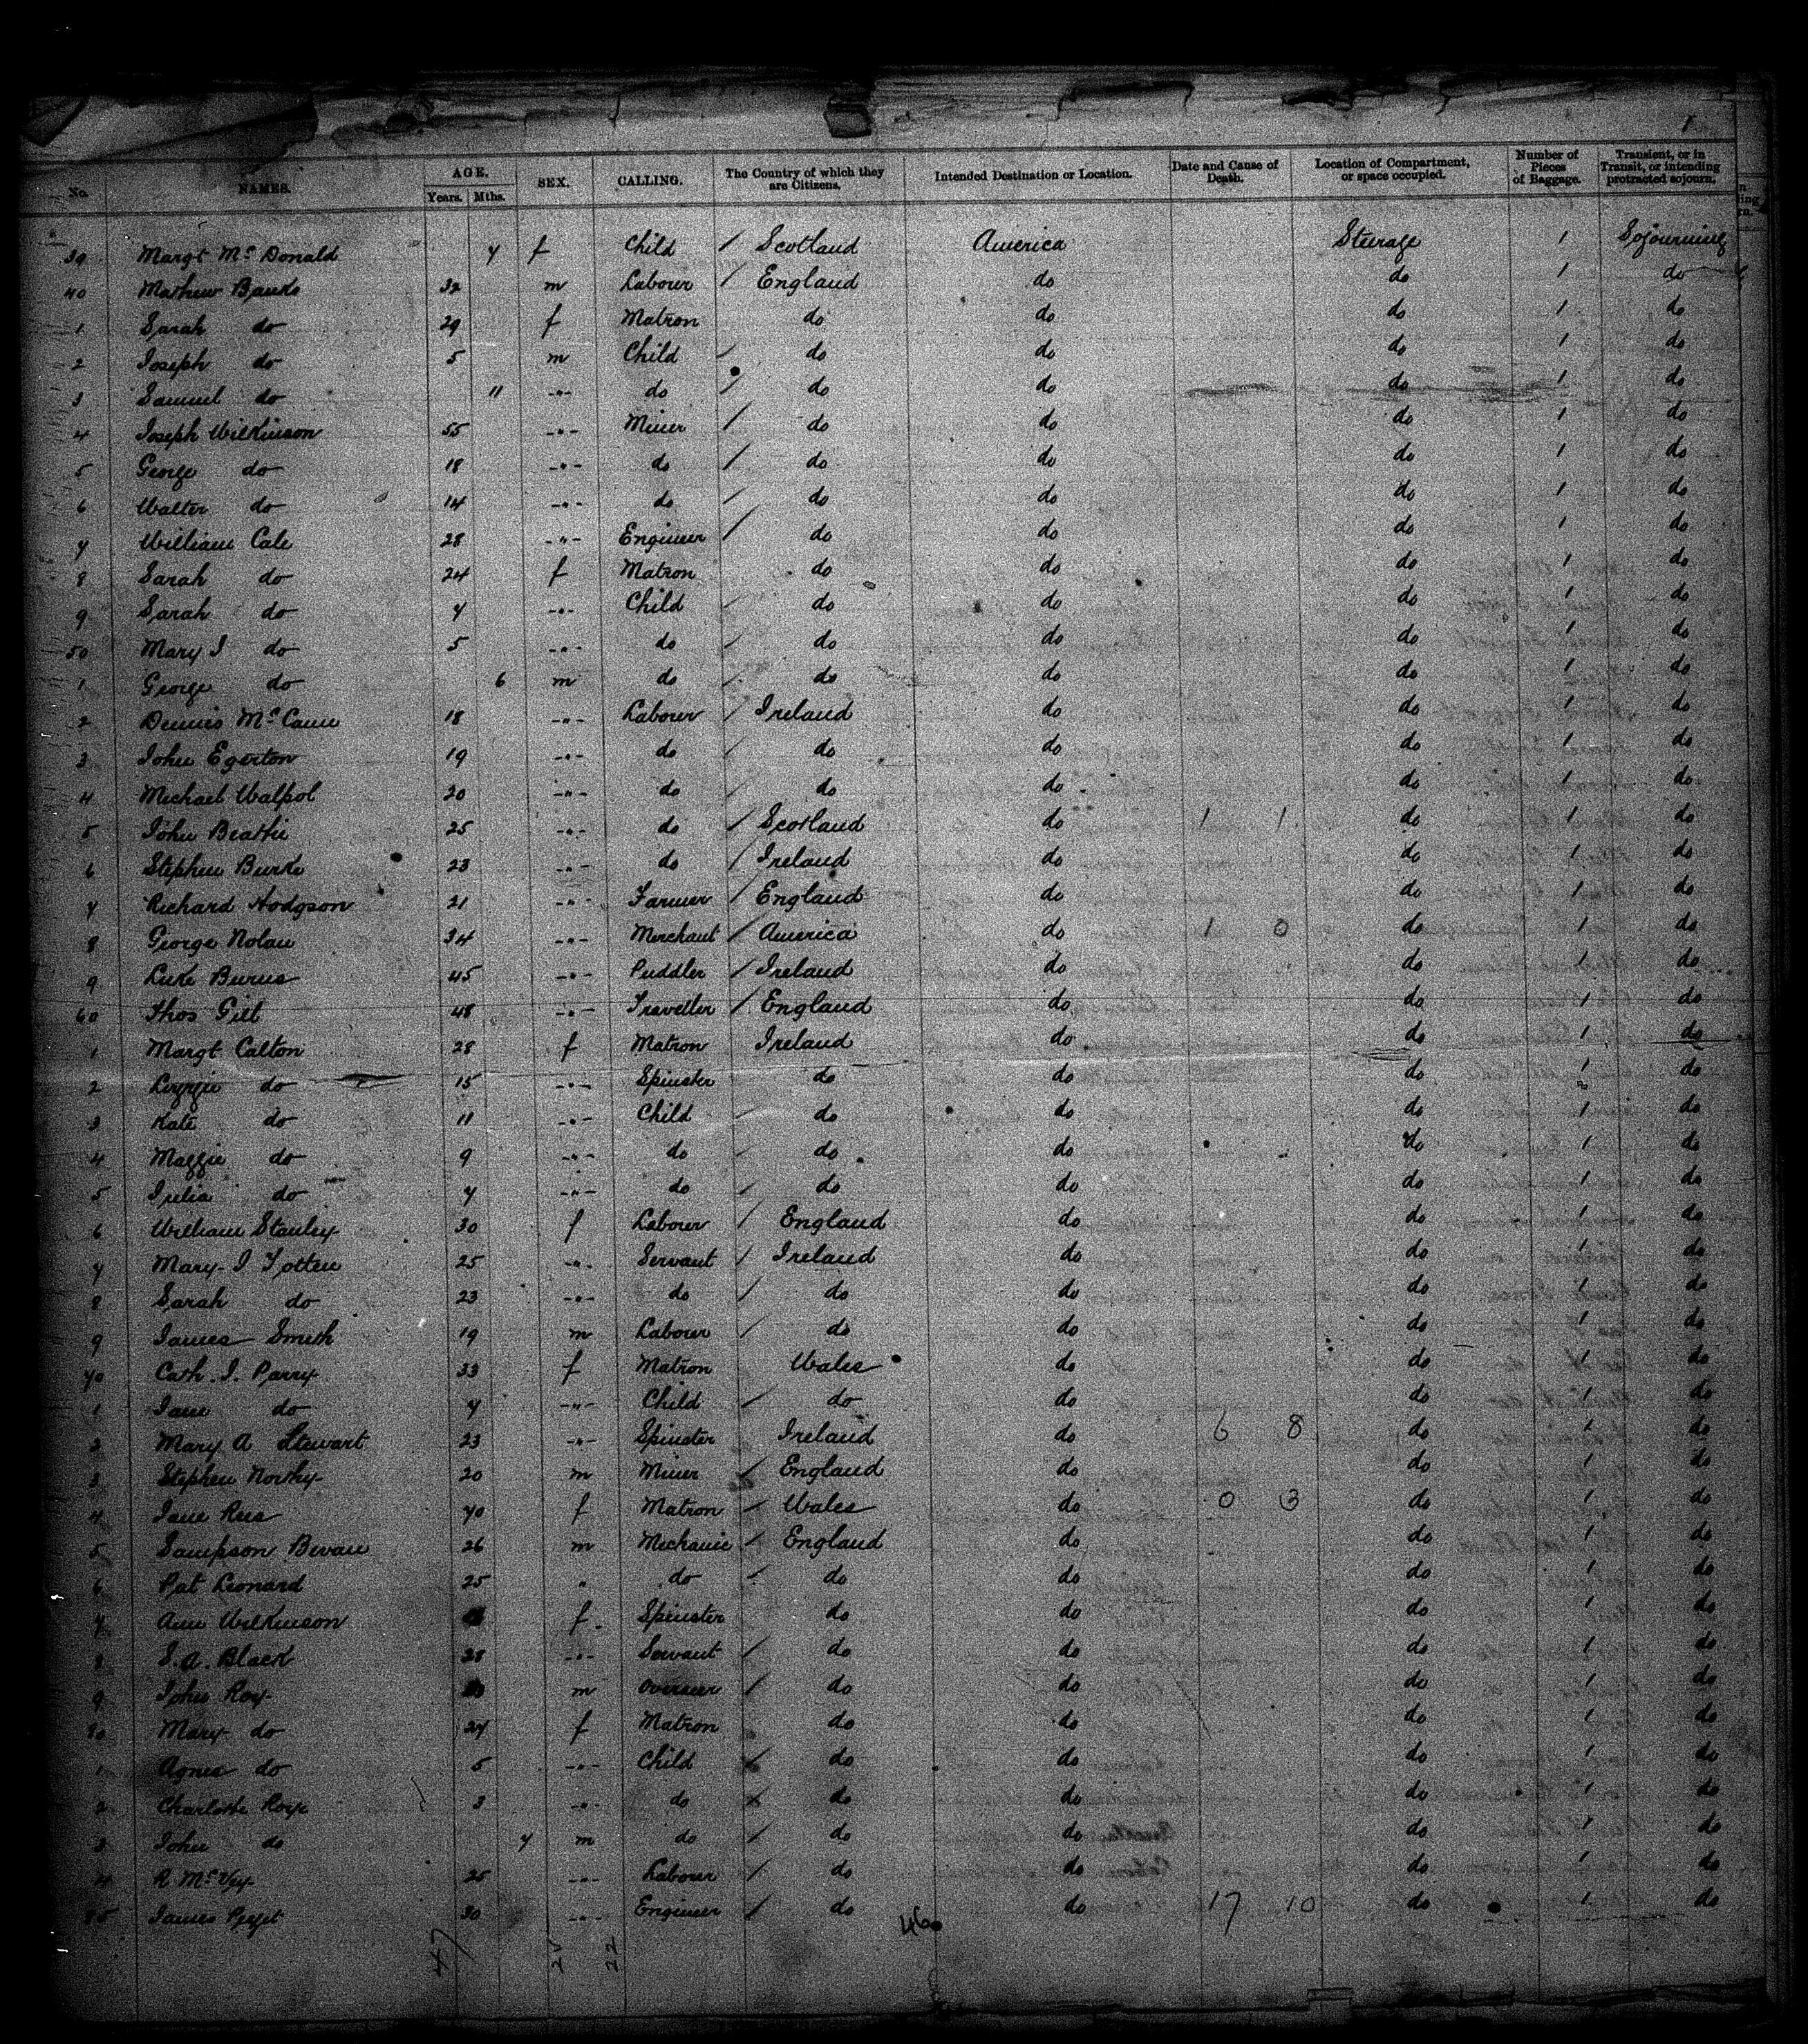 No. NAMES. AGE. Years. Mths. SEX. CALLING. The Country of which they are Citizens. Intended Destination or Location. Date and Cause of Death. Location of Compartment, or space occupied. Number of Pieces of Baggage. Transient, or in Transit, or intending protracted sojourn.
39 Margt McDonald 7 f Child / Scotland America Steerage 1 Sojourning
40 Mathew Banks 32 m Labourer / England do do 1 do
1 Sarah do 29 f Matron do do do 1 do
2 Joseph do 5 m Child / do do do 1 do
3 Samuel do 11 -"- do / do do do 1 do
4 Joseph Wilkinson 55 -"- Miner / do do do 1 do
5 George do 18 -"- do / do do do 1 do
6 Walter do 14 -"- do / do do do 1 do
7 William Cale 28 -"- Engineer / do do do 1 do
8 Sarah do 24 f Matron do do do 1 do
9 Sarah do 7 -"- Child / do do do 1 do
50 Mary J do 5 -"- do / do do do 1 do
1 George do 6 m do / do do do 1 do
2 Dennis McCann 18 -"- Labourer / Ireland do do 1 do
3 John Egerton 19 -"- do / do do do 1 do
4 Michael Walpol 20 -"- do / do do do 1 do
5 John Beattie 25 -"- do / Scotland do 1 1 do 1 do
6 Stephen Burke 23 -"- do / Ireland do do 1 do
7 Richard Hodgson 21 -"- Farmer / England do do 1 do
8 George Nolan 34 -"- Merchant / America do 1 0 do 1 do
9 Luke Burns 45 -"- Puddler / Ireland do do 1 do
60 Thos Gill 48 -"- Traveller / England do do 1 do
1 Margt Calton 28 f Matron Ireland do do 1 do
2 Lizzie do 15 -"- Spinster do do do 1 do
3 Kate do 11 -"- Child / do do do 1 do
4 Maggie do 9 -"- do / do do do 1 do
5 Julia do 7 -"- do / do do do 1 do
6 William Stanley 30 f Labourer / England do do 1 do
7 Mary J Totten 25 -"- Servant / Ireland do do 1 do
8 Sarah do 23 -"- do / do do do 1 do
9 James Smith 19 m Labourer / do do do 1 do
70 Cath. J. Parry 33 f Matron Wales do do 1 do
1 Jane do 7 -"- Child / do do do 1 do
2 Mary A Stewart 23 -"- Spinster Ireland do 6 8 do 1 do
3 Stephen 20 m Miner / England do do 1 do
4 Jane Rees 70 f Matron / Wales do 0 3 do 1 do
5 Sampson Bevan 26 m Mechanic / England do do 1 do
6 Pat Leonard 25 " do / do do do 1 do
7 Ann Wilkinson f Spinster do do do 1 do
8 S. A. Black 28 -"- Servant / do do do 1 do
9 John Roy m Overseer / do do do 1 do
80 Mary do 27 f Matron do do do 1 do
1 Agnes do 5 -"- Child / do do do 1 do
2 Charlotte Roy 3 -"- do / do do do 1 do
3 John do 7 m do / do do do 1 do
4 R McVey 25 -"- Labourer / do do do 1 do
85 James 30 -"- Engineer / do do 17 10 do 1 do
47 22 46